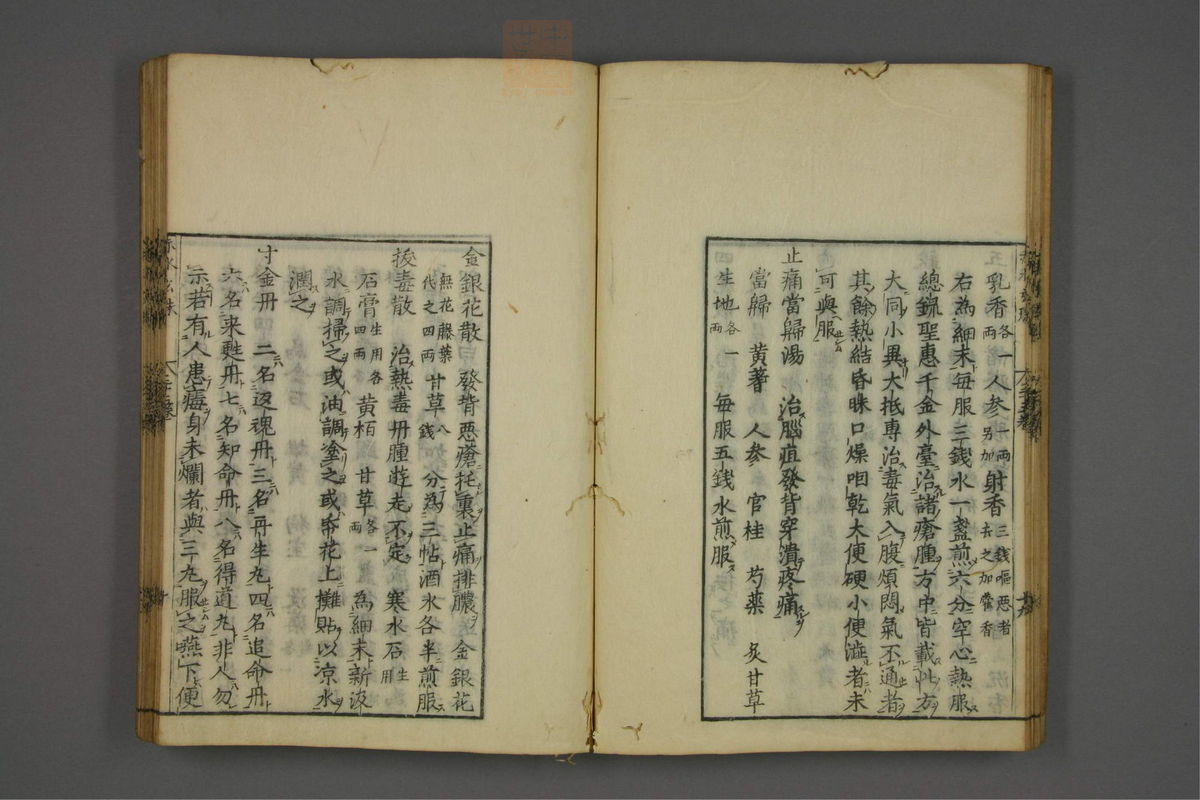 乳香各一兩人参別加一兩射香三錢嘔悪者去之加藿香
右為細末毎服三錢水一盞煎六分空心熱服
總録聖惠千金外臺治諸瘡腫方中皆載此方
大同小異大抵専治毒氣入腹煩悶氣不通者
其餘熱結昏昧口燥咽乾大便硬小便澁者未
可與服
止痛當歸湯　治腦疽發背穿潰疼痛
當歸　黄蓍　人参　官桂　芍藥　炙甘草
生地各一兩　毎服五錢水煎服
金銀花散　發背悪瘡托裏止痛排膿　金銀花
無花藤葉代之四兩　甘草八錢　分為三帖酒水各半煎服
抜毒散　治熱毒丹腫遊走不定　寒水石生用
石膏生用各四兩　黄栢　甘草各一兩　為細末新汲
水調掃之或油調塗之或帋花上攤貼以凉水
潤之
寸金丹　二名返魂丹三名再生丸四名追命丹
六名来甦丹七名知命丹八名得道丸非人勿
示若有人患癦身未爛者與三丸服之燕下便